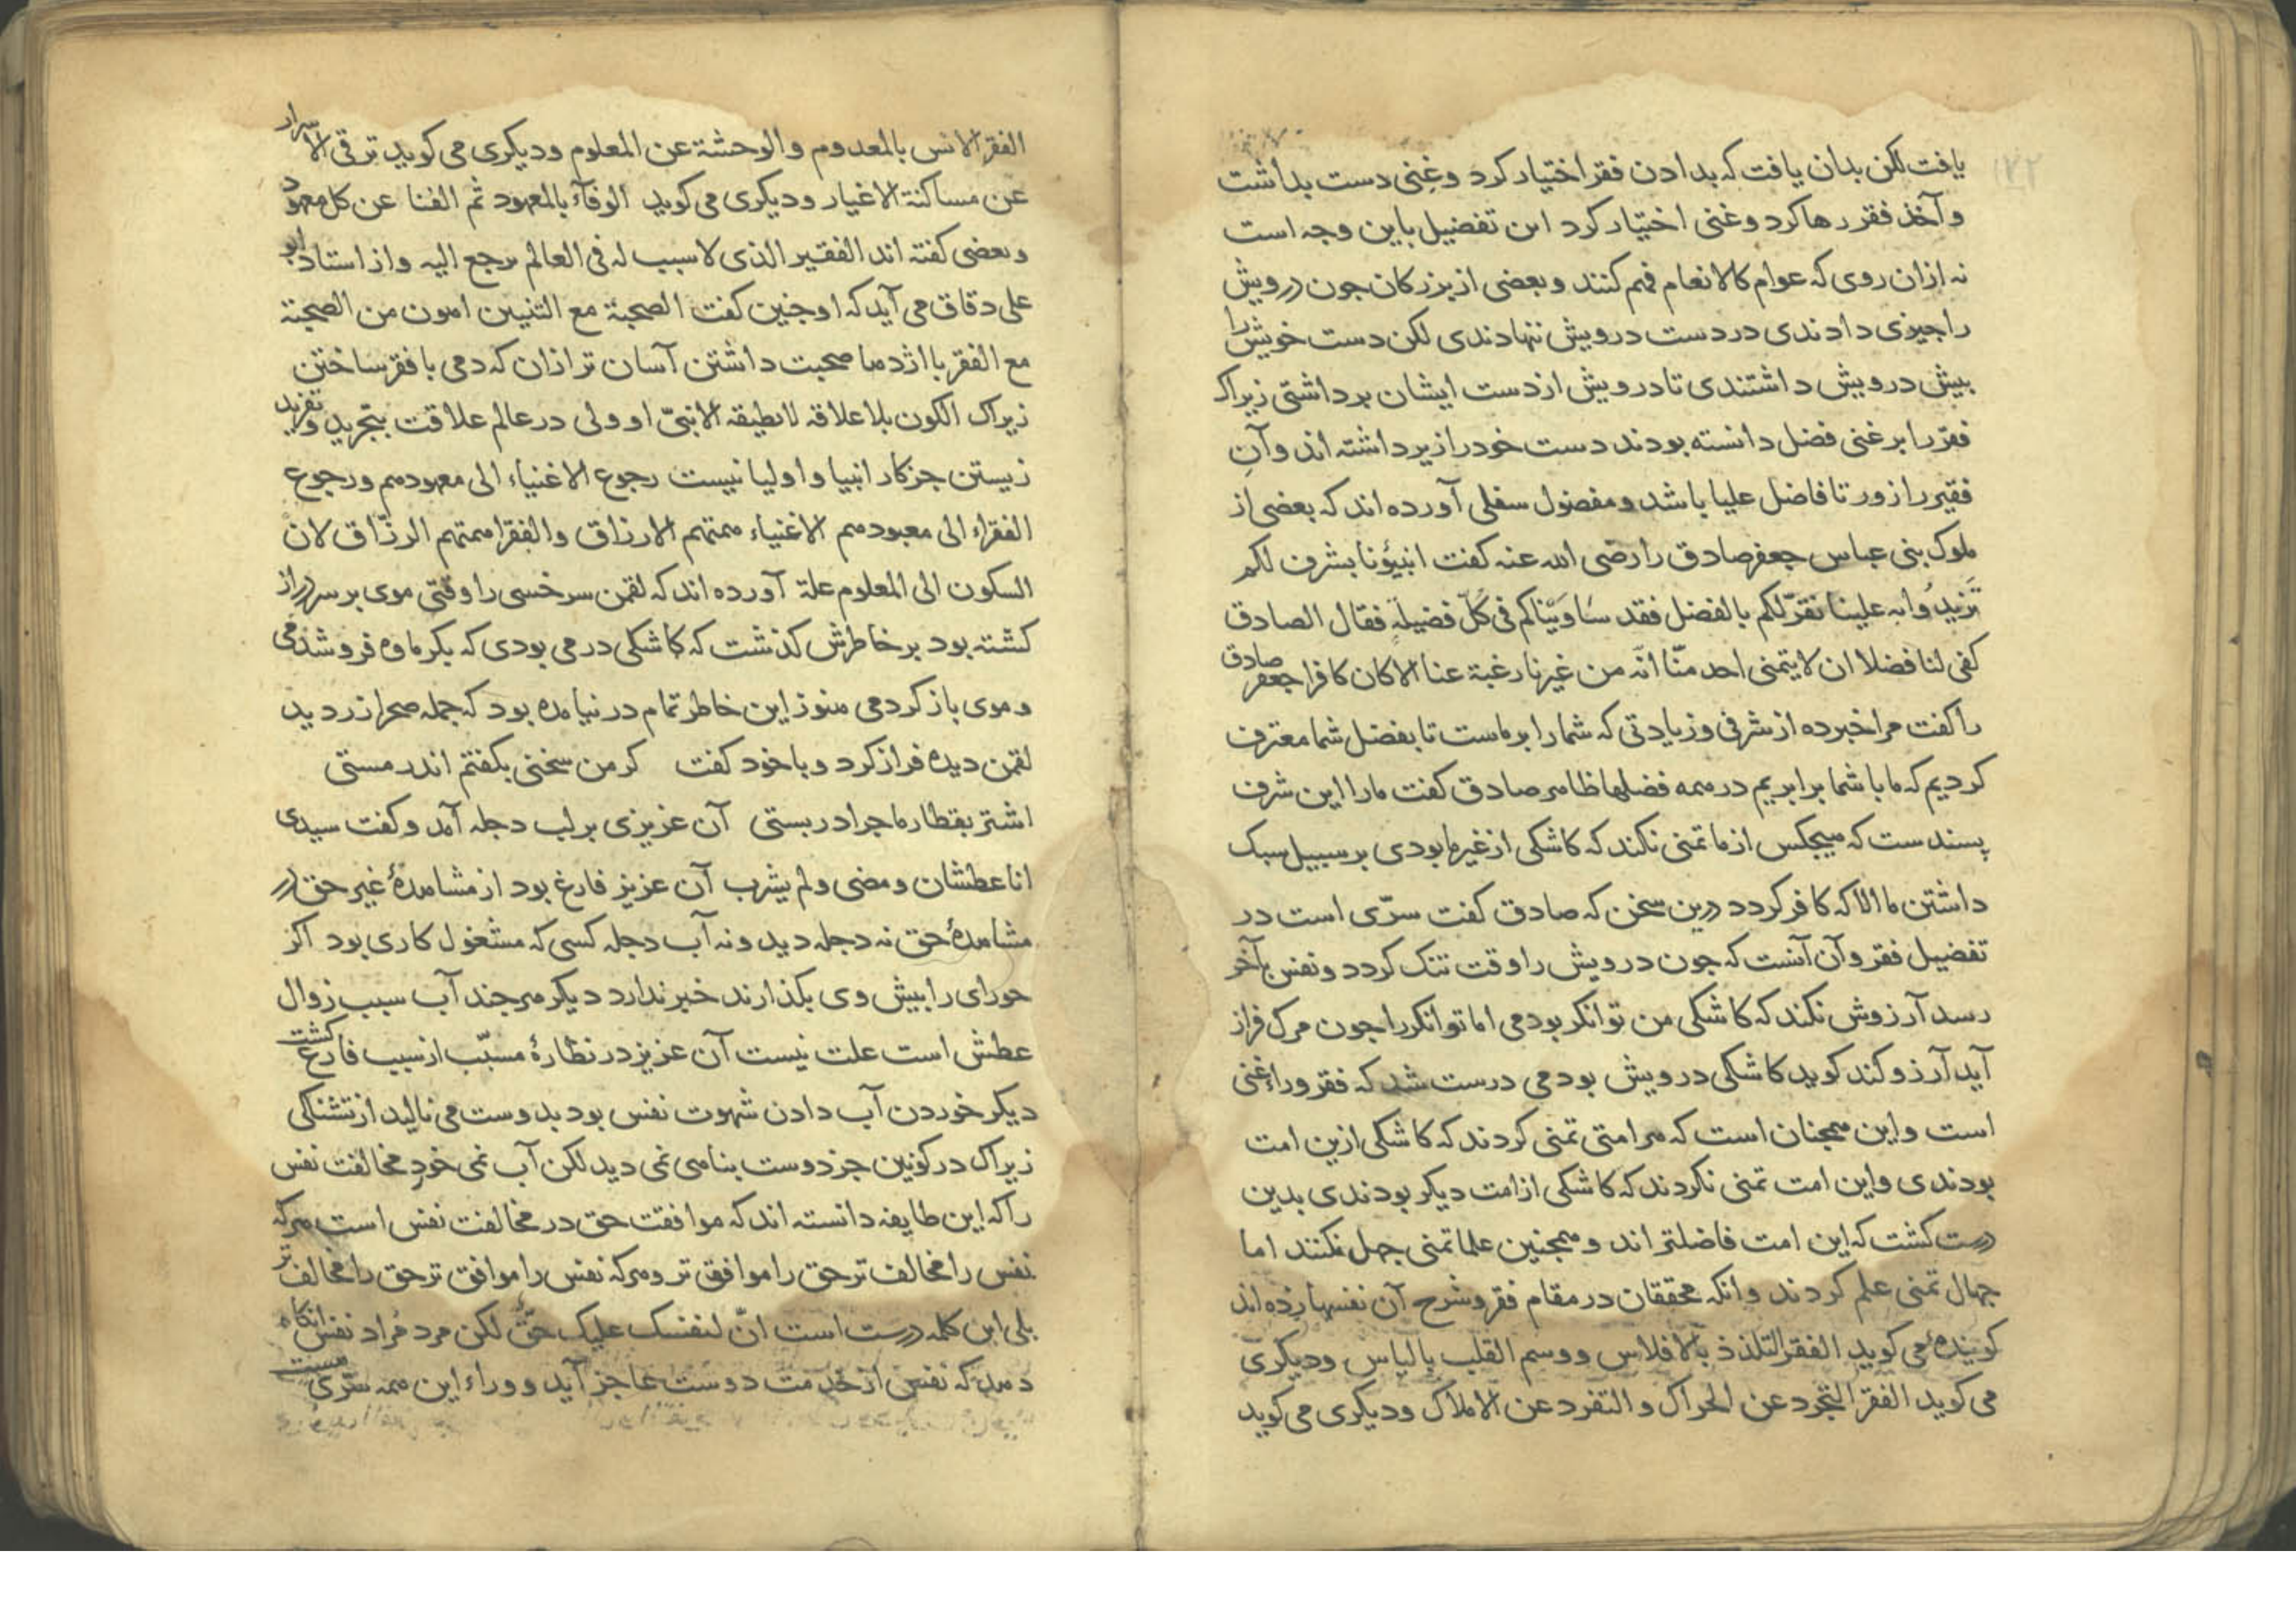 یافت لکن بدان یافت که بدادن فقر اختیار کرد وغنی دست بداشت
وآخذ فقر رها کرد وغنی اختیار کرد این تفضیل باین وجه است
نه ازان روی که عوام کالانعام فهم کنند وبعضی از بزرکان جون درویش
را جیزی دادندی در دست درویش ننهادندی لکن دست خویش را
بیش درویش داشتندی تا درویش از دست ایشان برداشتی زیراک
فقر را بر غنی فضل دانسته بودند دست خود را زیر داشته اند وآن
فقیر را زور تا فاضل علیا باشد ومفضول سفلی آورده اند که بعضی از
ملوک بنی عباس جعفر صادق را رضی الله عنه کفت انبیؤنا بشرف لکم
تزیدوا به علینا نقرّ لکم بالفضل فقد ساویناکم فی کلّ فضیلة فقال الصادق
کفی لنا فضلا ان لا یتمنی احد منّا انّه من غیرنا رغبة عنا الا کان کافرا جعفر صادق
را کفت مرا خبر ده از شرفی وزیادتی که شما را بر ماست تا بفضل شما معترف
کردیم که ما با شما برابریم در همه فضلها ظاهر صادق کفت ما را این شرف
پسندست که هیجکس از ما تمنی نکند که کاشکی از غیر ما بودی بر سبیل سبک
داشتن ما الا که کافر کردد درین سخن که صادق کفت سرّی است در
تفضیل فقر وآن آنست که جون درویش را وقت تنک کردد ونفس بآخر
رسد آرزوش نکند که کاشکی من توانکر بودمی اما توانکر را جون مرک فراز
آید آرزو کند کوید کاشکی درویش بودمی درست شد که فقر وراء غنی
است واین همجنان است که هر امتی تمنی کردند که کاشکی ازین امت
بودندی واین امت تمنی نکردند که کاشکی از امت دیکر بودندی بدین
درست کشت که این امت فاضلتر اند وهمجنین علما تمنی جهل نکنند اما
جهال تمنی علم کردند وانکه محققان در مقام فقر وشرح آن نفسها زده اند
کویندهٔ می کوید الفقر التلذذ بالافلاس ووسم القلب بالیاس ودیکری
می کوید الفقر التجرد عن الحراک والتفرد عن الاملاک ودیکری می کوید
الفقر الانس بالمعدوم والوحشة عن المعلوم ودیکری می کوید ترقی الاسرار
عن مساکنة الاغیار ودیکری می کوید الوفآء بالمعهود ثم الفنا عن کل معهود
وبعضی کفته اند الفقیر الذی لا سبب له فی العالم یرجع الیه واز استاد ابو
علی دقاق می آید که او جنین کفت الصحبة مع التنین اهون من الصحبة
مع الفقر با اژدها صحبت داشتن آسان تر ازان که دمی با فقر ساختن
زیراک الکون بلا علاقه لا یطیقه الا نبیّ او ولی در عالم علاقت بتجرید وتفرید
زیستن جز کار انبیا واولیا نیست رجوع الاغنیاء الی معهودهم ورجوع
الفقراء الی معبودهم الاغنیاء همتهم الارزاق والفقرا همتهم الرزّاق لان
السکون الی المعلوم علة آورده اند که لقمن سرخسی را وقتی موی بر سر دراز
کشته بود بر خاطرش کذشت که کاشکی درمی بودی که بکرماوه فروشدمی
وموی باز کردمی هنوز این خاطر تمام در نیامده بود که جمله صحرا زر دید
لقمن دیده فراز کرد وبا خود کفت کر من سخنی بکفتم اندر مستی
اشتر بقطار ما جرا در بستی آن عزیزی بر لب دجله آمد وکفت سیدی
انا عطشان ومضی ولم یشرب آن عزیز فارغ بود از مشاهدهٔ غیر حق در
مشاهدهٔ حق نه دجله دید ونه آب دجله کسی که مشغول کاری بود اکر
حورای را بیش وی بکذارند خبر ندارد دیکر هرجند آب سبب زوال
عطش است علت نیست آن عزیز در نظارهٔ مسبّب از سبب فارغ کشت
دیکر خوردن آب دادن شهوت نفس بود بدوست می نالید از تشنکی
زیراک در کونین جز دوست بناهی نمی دید لکن آب نمی خورد مخالفت نفس
را که این طایفه دانسته اند که موافقت حق در مخالفت نفس است هرکه
نفس را مخالف تر حق را موافق تر وهرکه نفس را موافق تر حق را مخالف تر
بلی این کلمه درست است انّ لنفسک علیک حقّ لکن مرد مراد نفس آنکاه
دهد که نفس از خدمت دوست عاجز آید ووراء این همه سرّی هست